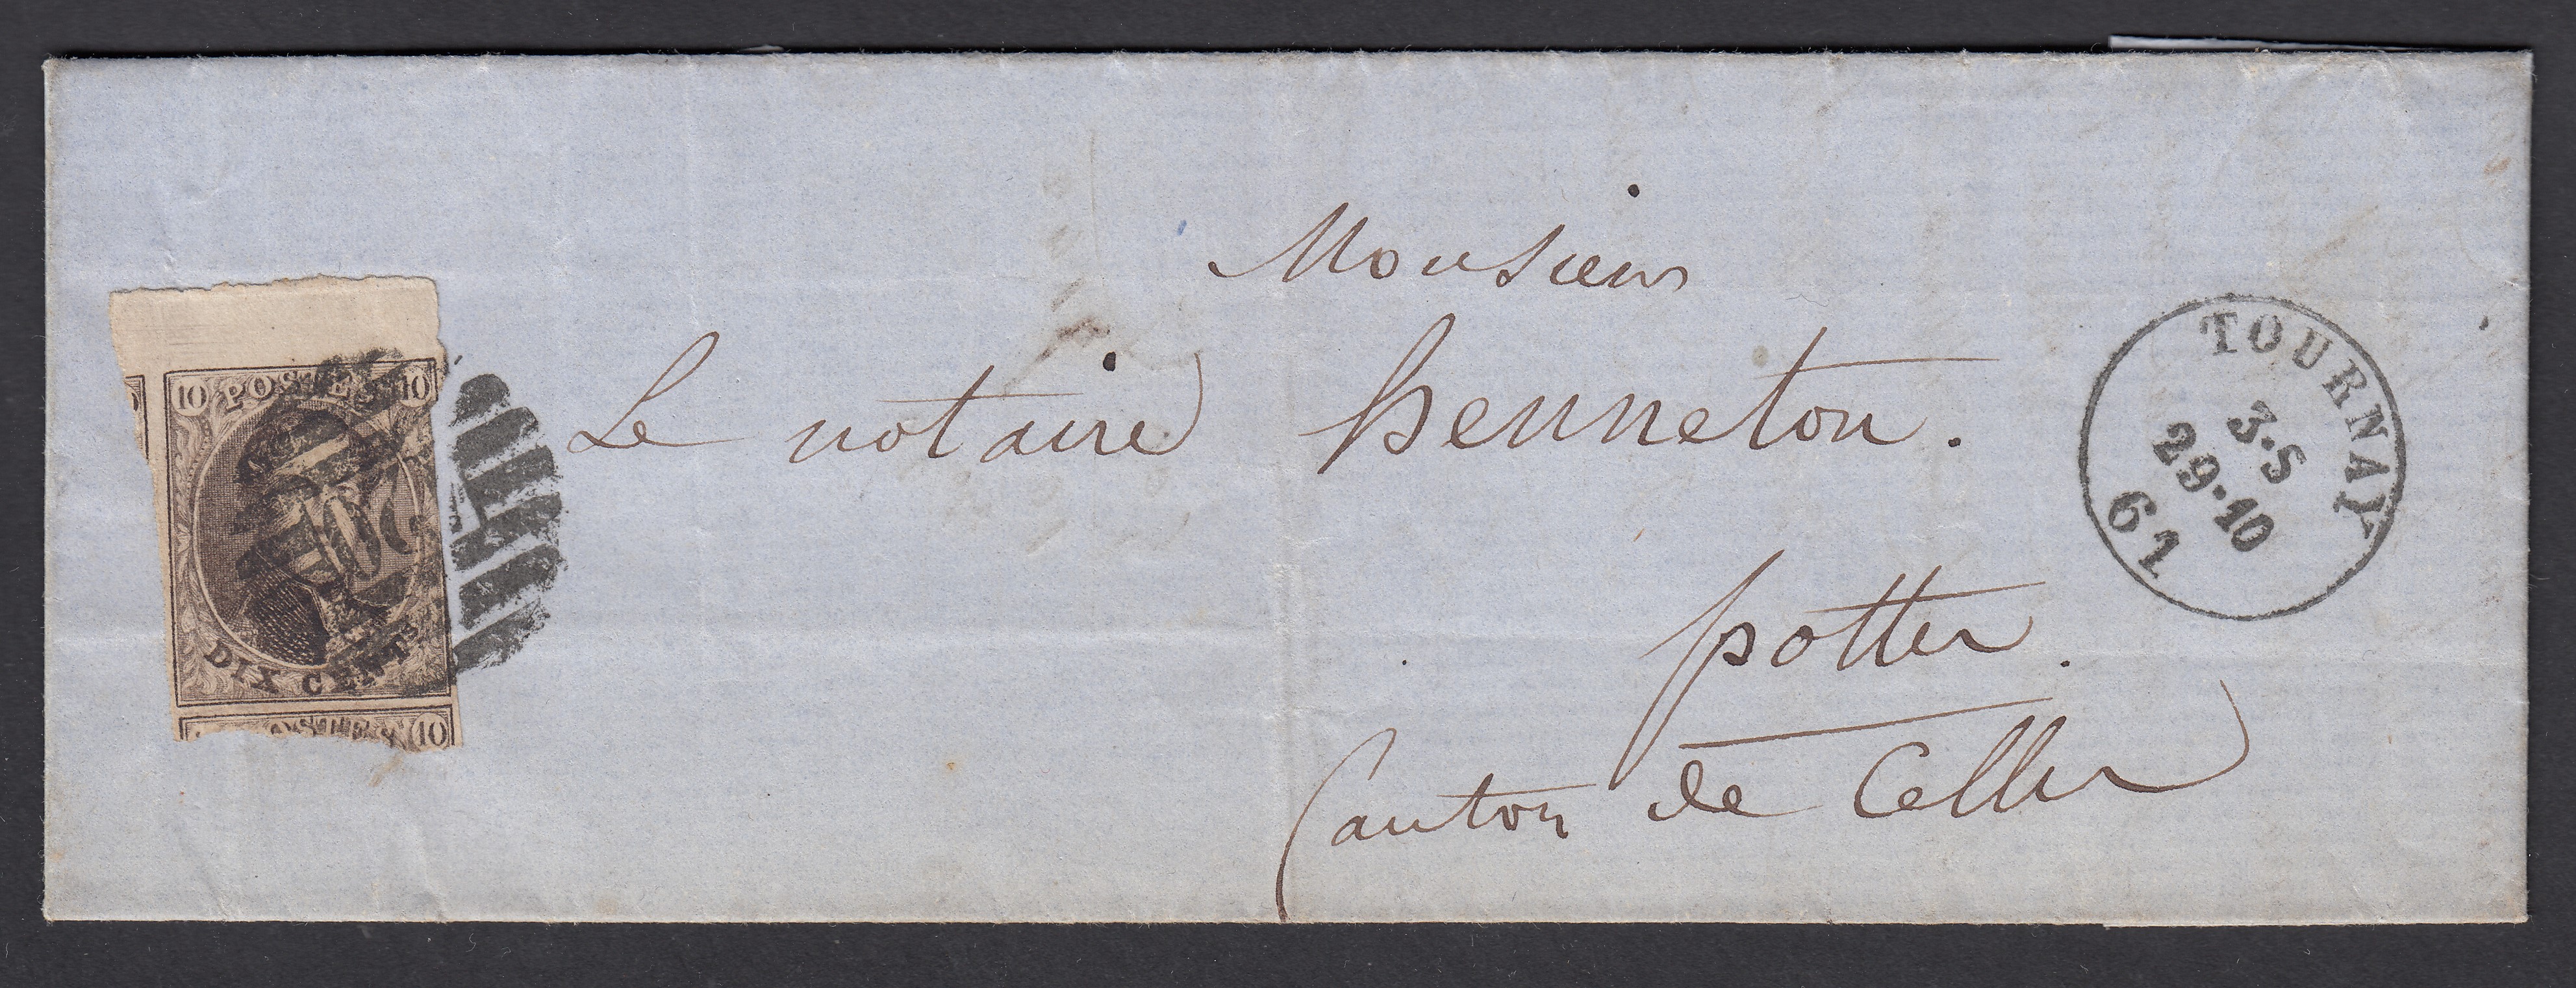 Monsieur
Le notaire henneton.
potter.
Canton de Celles
10 POSTES 10
DIX CENTS
OSTES 10
TOURNAY
3·S
29·10
61